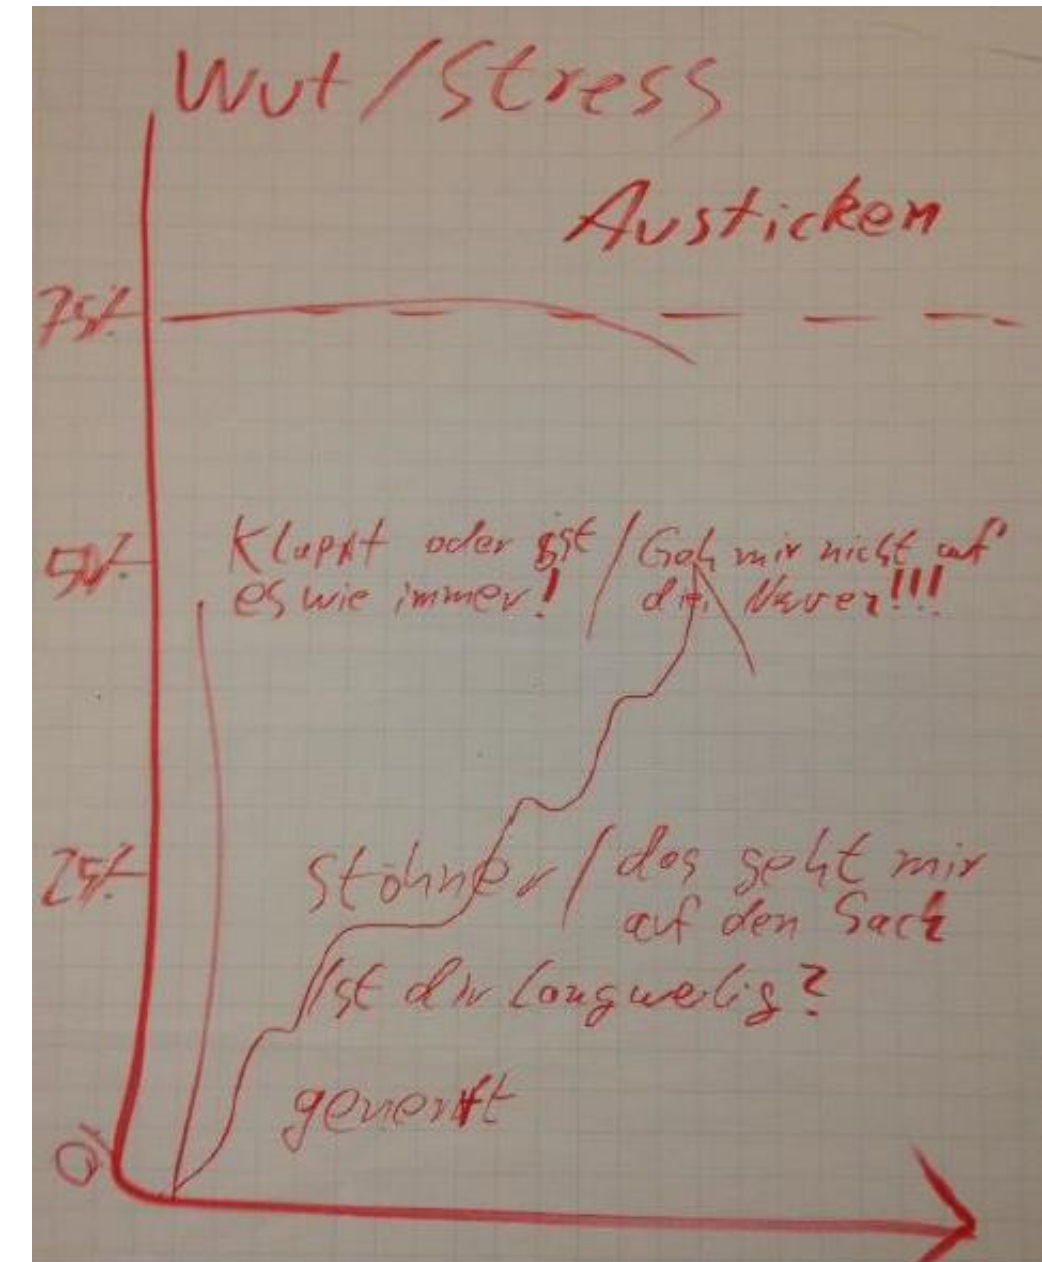 Wut / Stress
Austicken
75%
50%
Klappt oder ist / Geh mir nicht auf
es wie immer! die Nerven!!!
25%
Stöhner / das geht mir
auf den Sack
Ist dir langweilig?
genervt
0%